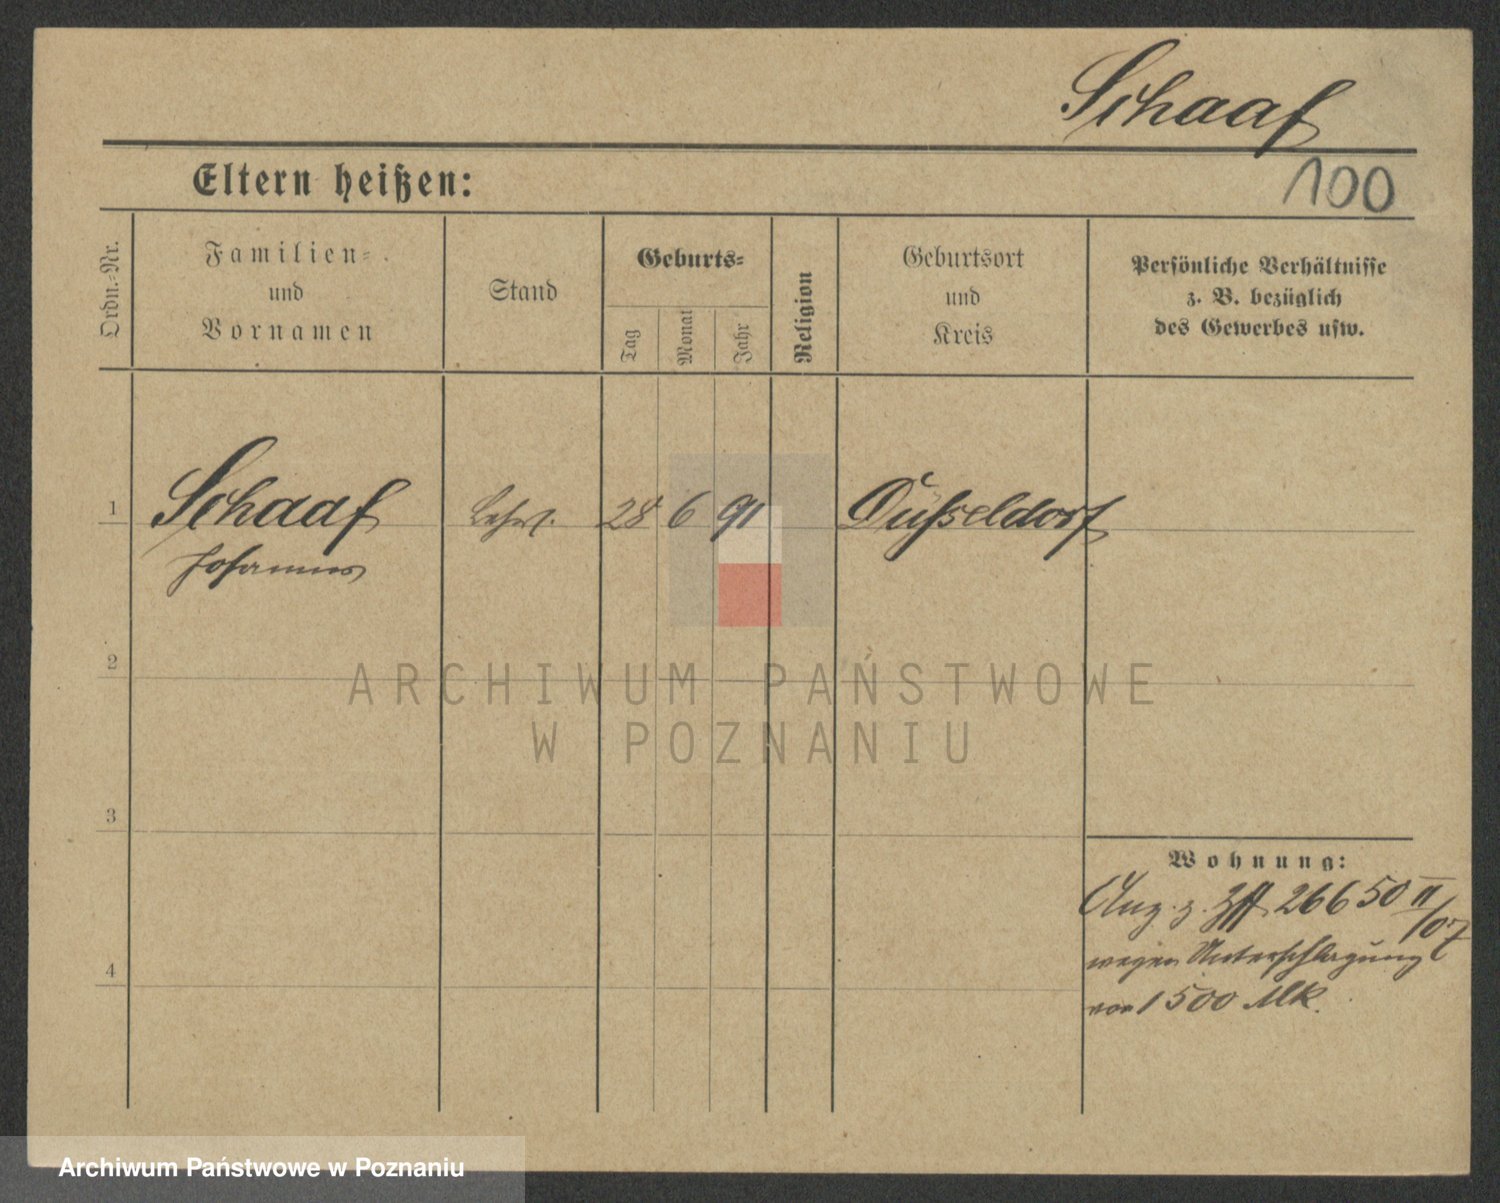 Schaaf
Eltern heißen:
100
Ordn.-Nr.
Familien-
und
Vornamen
Stand
Geburts-
Tag
Monat
Jahr
Religion
Geburtsort
und
Kreis
Persönliche Verhältnisse
z. B. bezüglich
des Gewerbes usw.
1
Schaaf
28
6
91
Düsseldorf
Johannes
2
ARCHIWUM PAŃSTWOWE
W POZNANIU
3
Wohnung:
Anz. z. 26650 II/07
wegen Unterschlagung
von 1500 Mk.
4
Archiwum Państwowe w Poznaniu